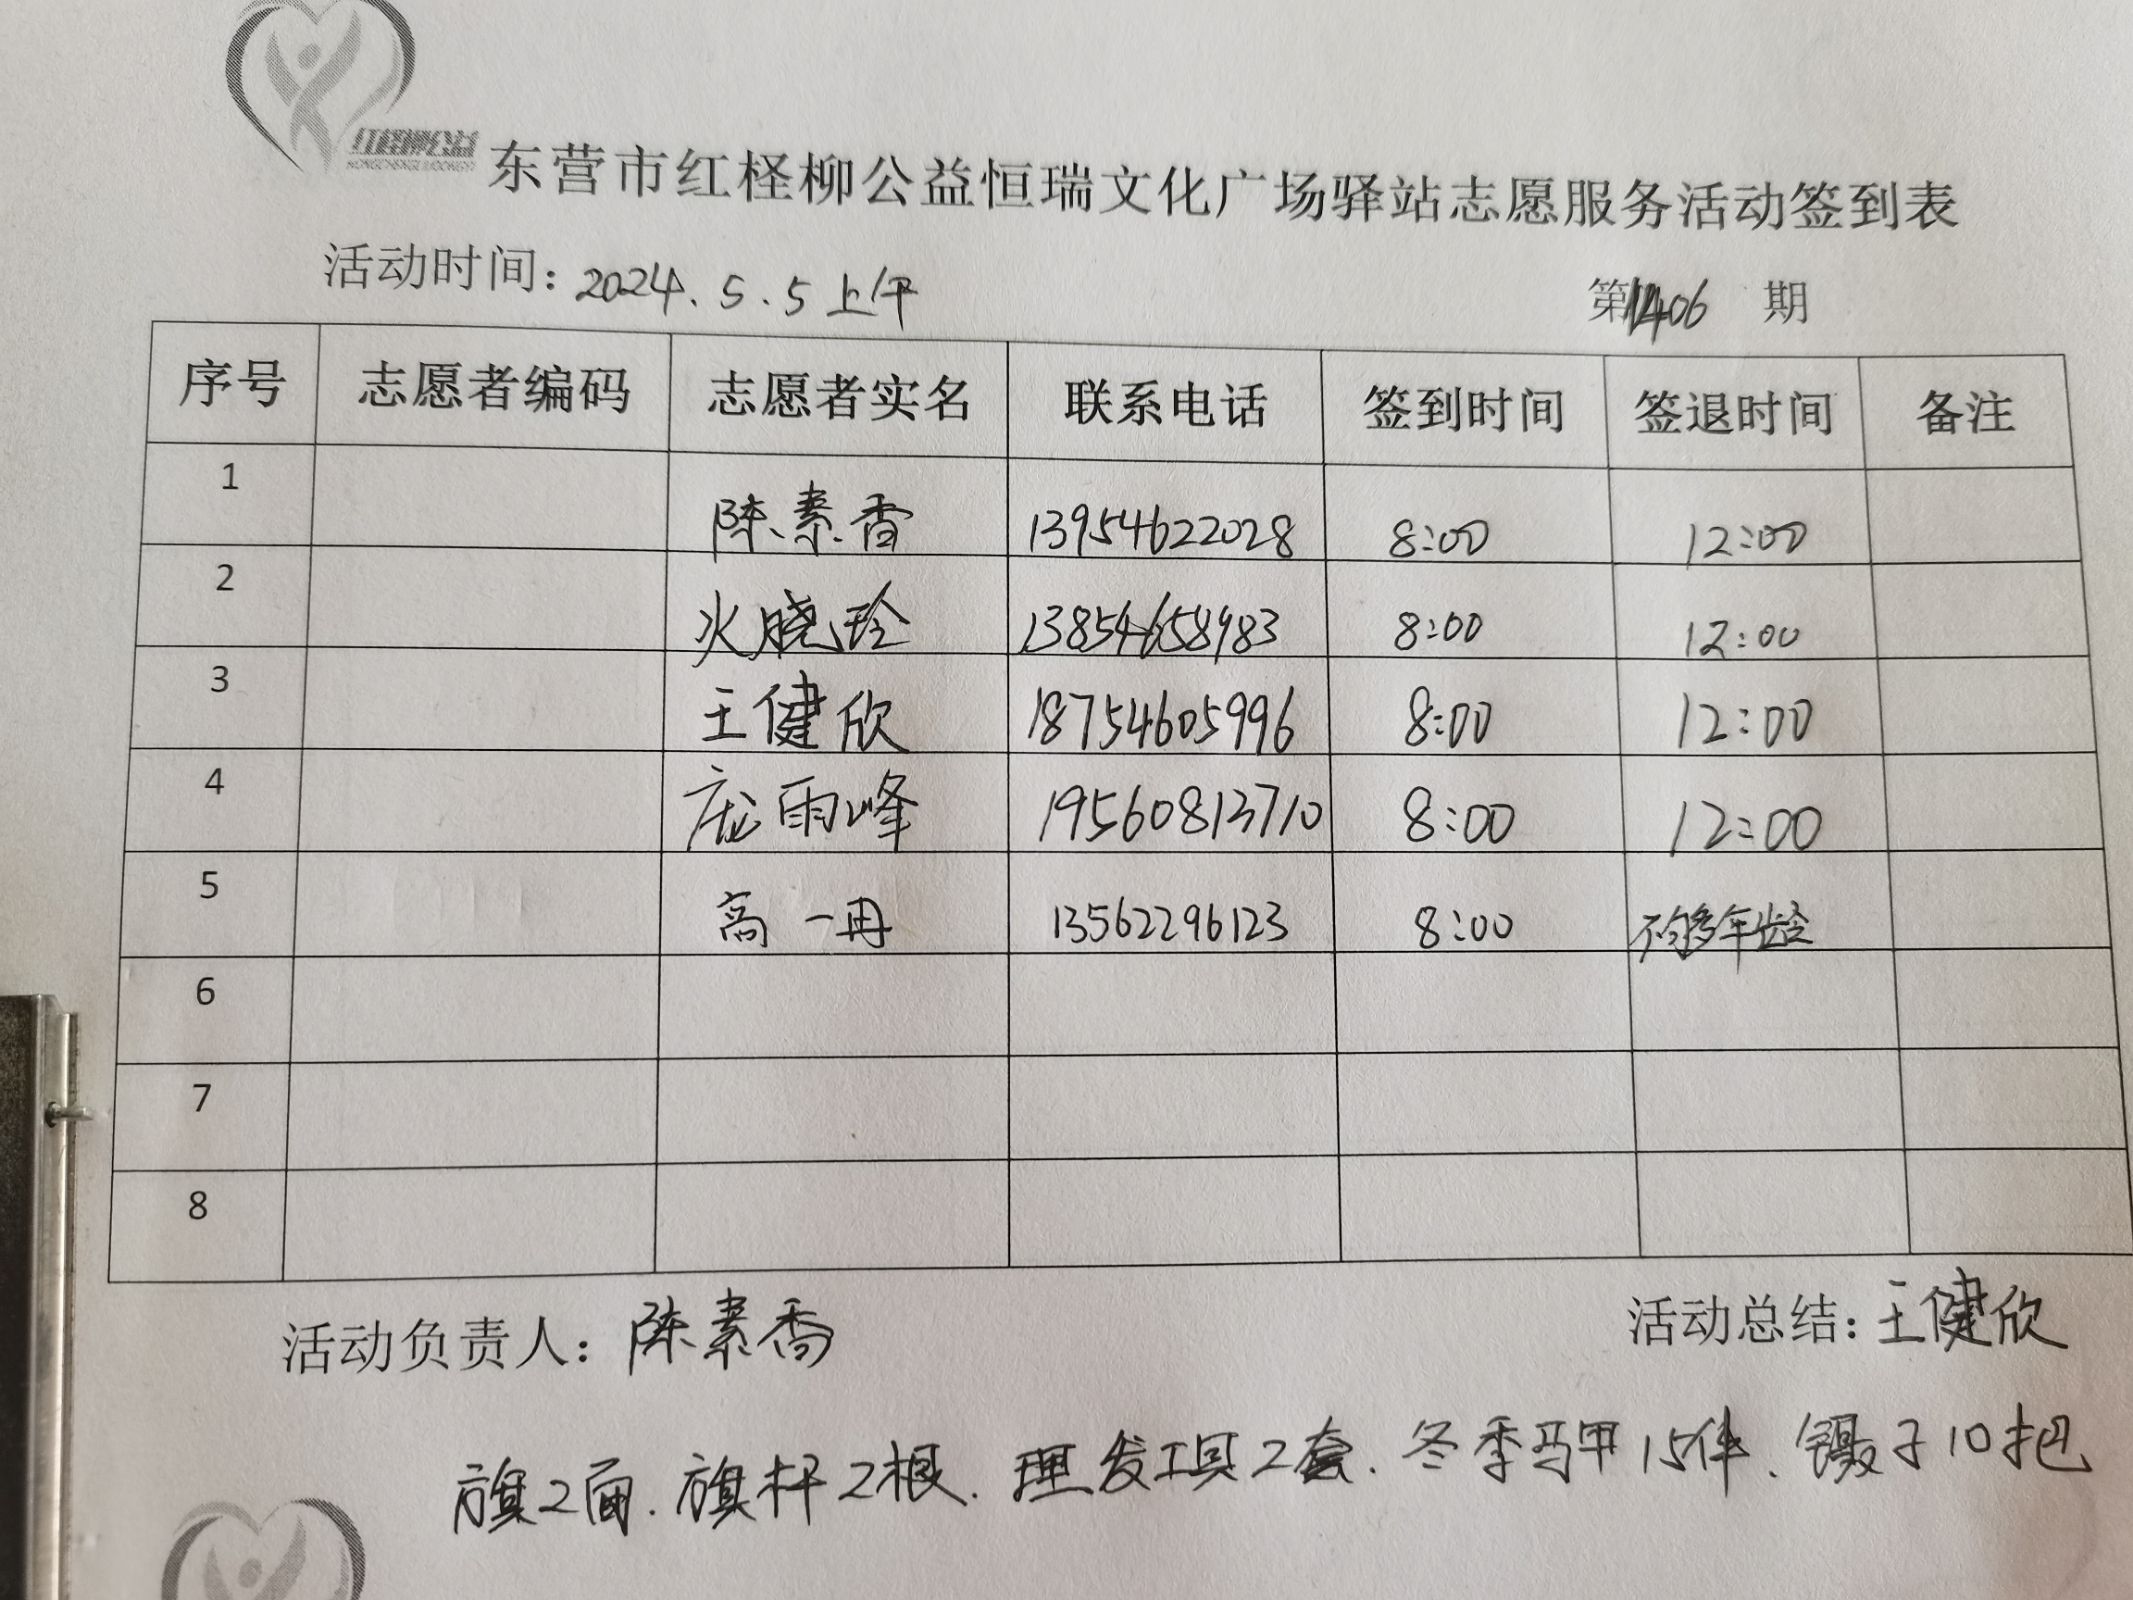 红柽柳公益
东营市红柽柳公益恒瑞文化广场驿站志愿服务活动签到表
活动时间：2024.5.5上午 第1406期
序号 志愿者编码 志愿者实名 联系电话 签到时间 签退时间 备注
1 陈素香 13954622028 8:00 12:00
2 火晓玲 13854658983 8:00 12:00
3 王健欣 18754605996 8:00 12:00
4 庞雨峰 19560813710 8:00 12:00
5 高一冉 13562296123 8:00 不够年龄
6
7
8
活动负责人：陈素香 活动总结：王健欣
旗2面.旗杆2根.理发工具2套.冬季马甲15件、镊子10把